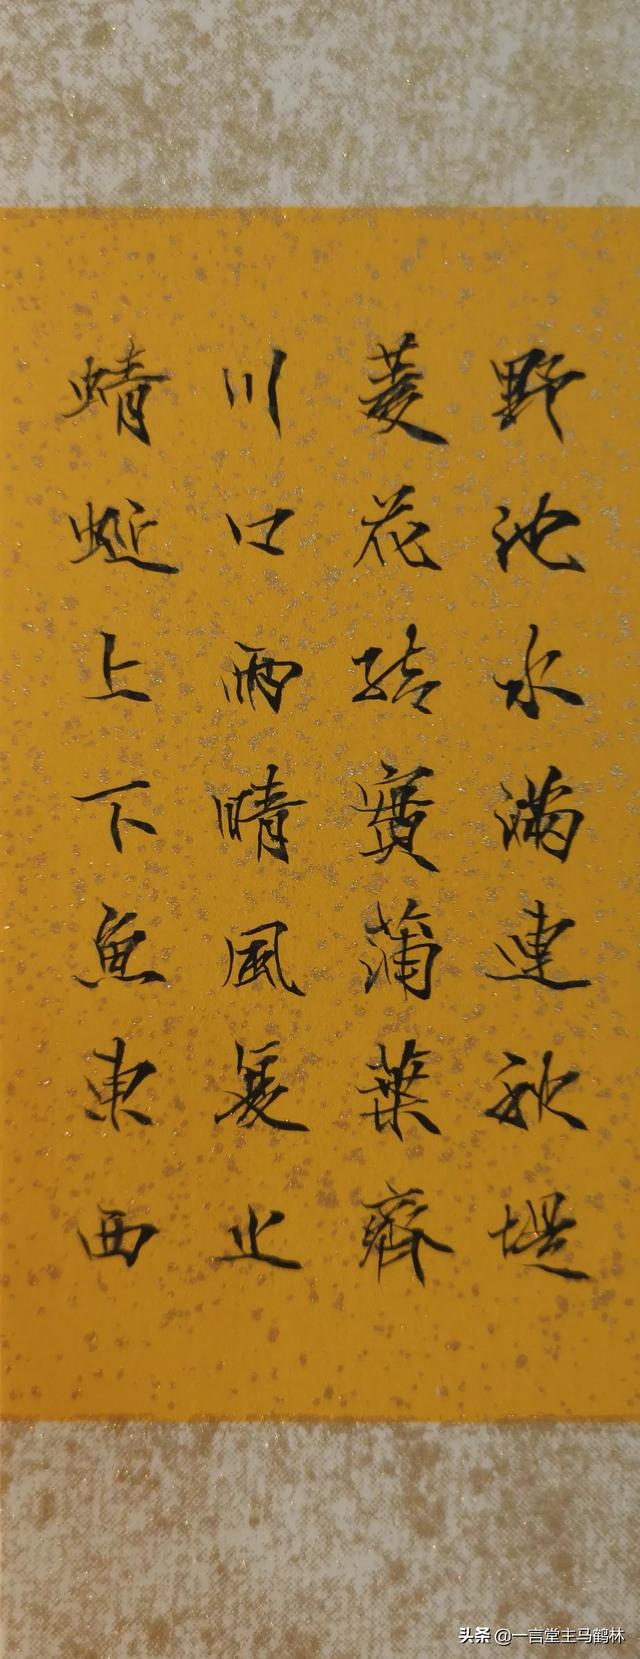 野池水滿連秋堤
菱花結實蒲葉齊
川口雨晴風夏止
蜻蜓上下魚東西
头条 @一言堂主马鹤林